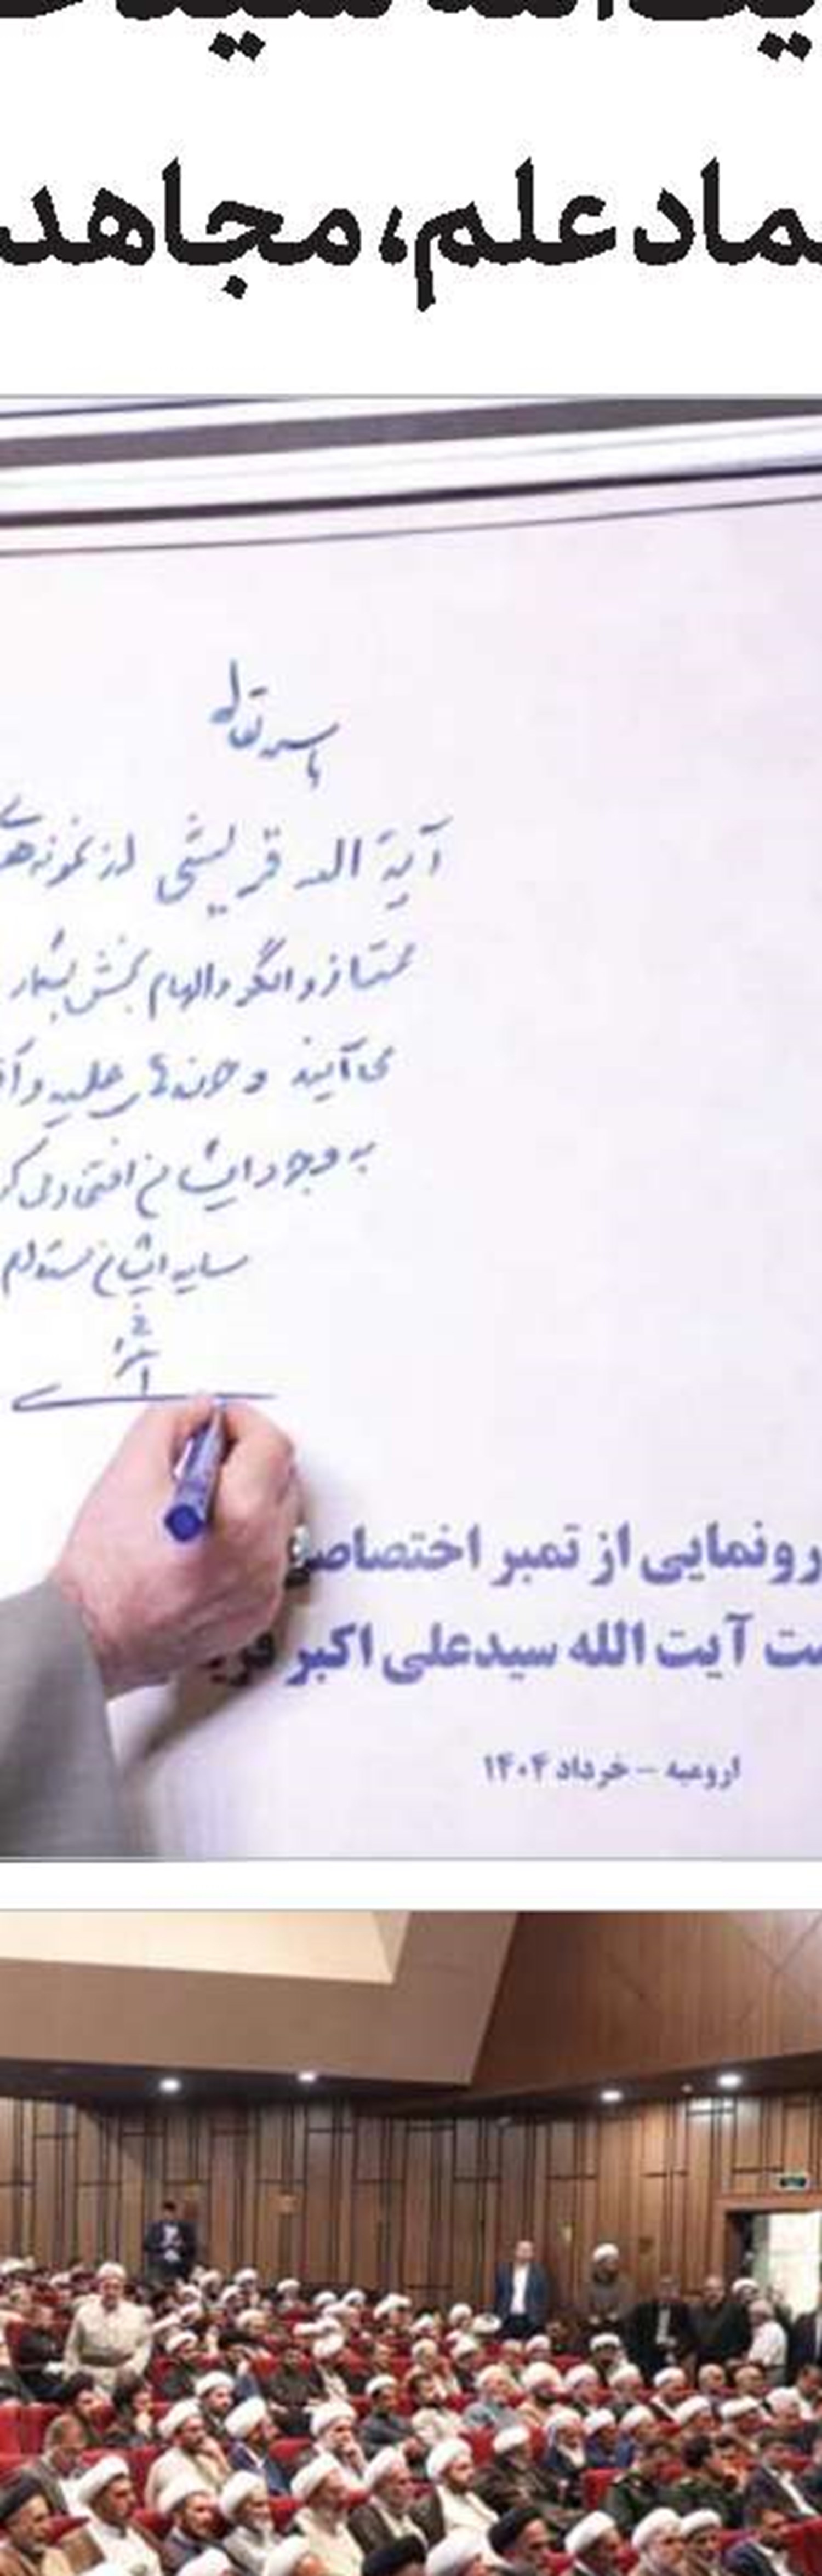 نماد علم، مجاهد
باسمه تعالی
آیة الله قریشی از نمونه‌های
ممتاز و الگو و الهام بخش بشمار
می‌آیند و حوزه‌های علمیه و
به وجود ایشان افتخار
سایه ایشان مستدام
رونمایی از تمبر اختصاصی
آیت الله سیدعلی اکبر
ارومیه - خرداد ۱۴۰۴